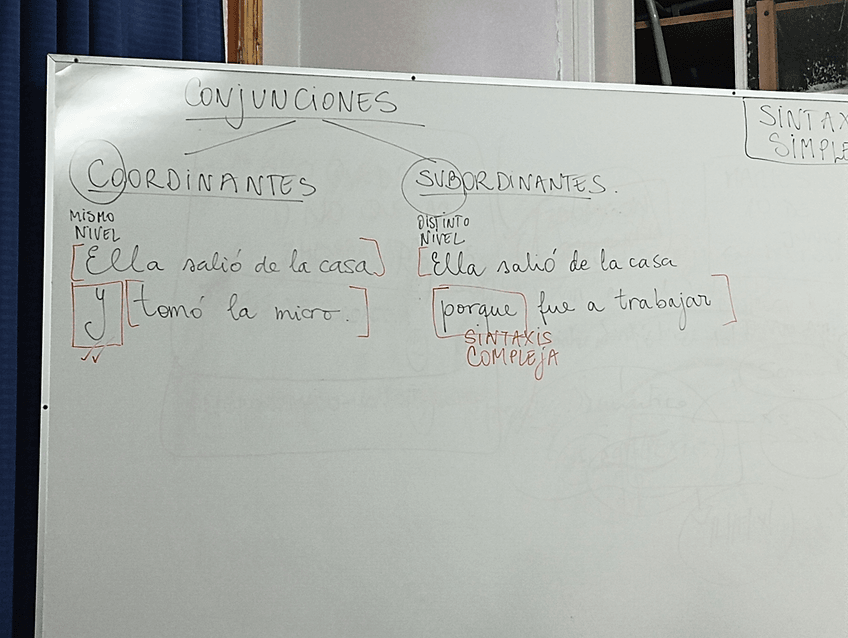 CONJUNCIONES
COORDINANTES
MISMO
NIVEL
[Ella salió de la casa]
y [tomó la micro.]
SUBORDINANTES.
DISTINTO
NIVEL
[Ella salió de la casa
porque fue a trabajar]
SINTAXIS
COMPLEJA